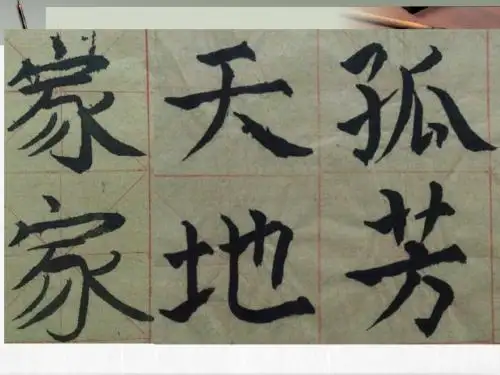 孤芳
天地
家家